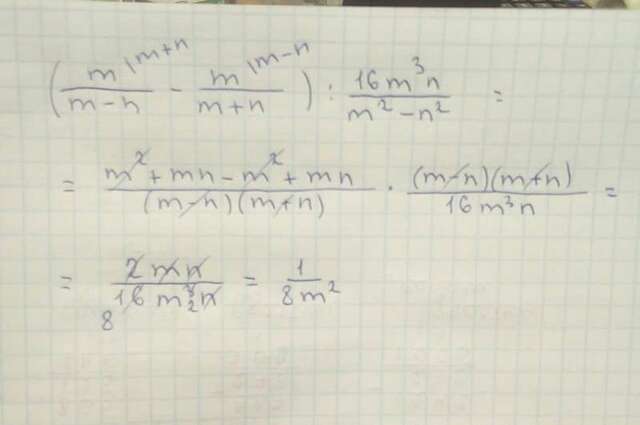 (m\m+n/(m-n) - m\m-n/(m+n)) : 16m³n/(m²-n²) =
= (m²+mn-m²+mn)/((m-n)(m+n)) · (m-n)(m+n)/(16m³n) =
= 2mn/(16m³n) 8 2 = 1/(8m²)